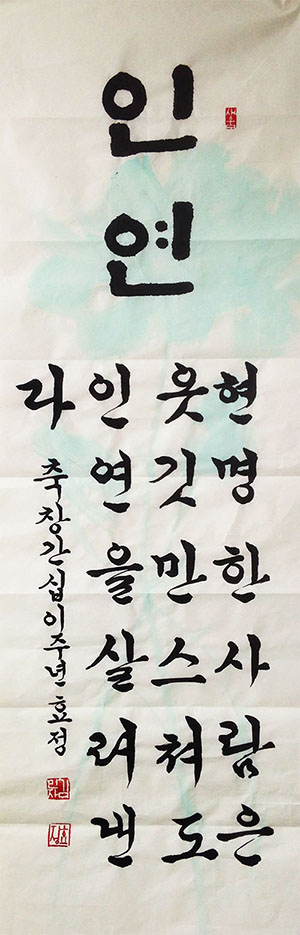 인연
현명한사람은
옷깃만스쳐도
인연을살려낸
라
축창간십이주년 효정